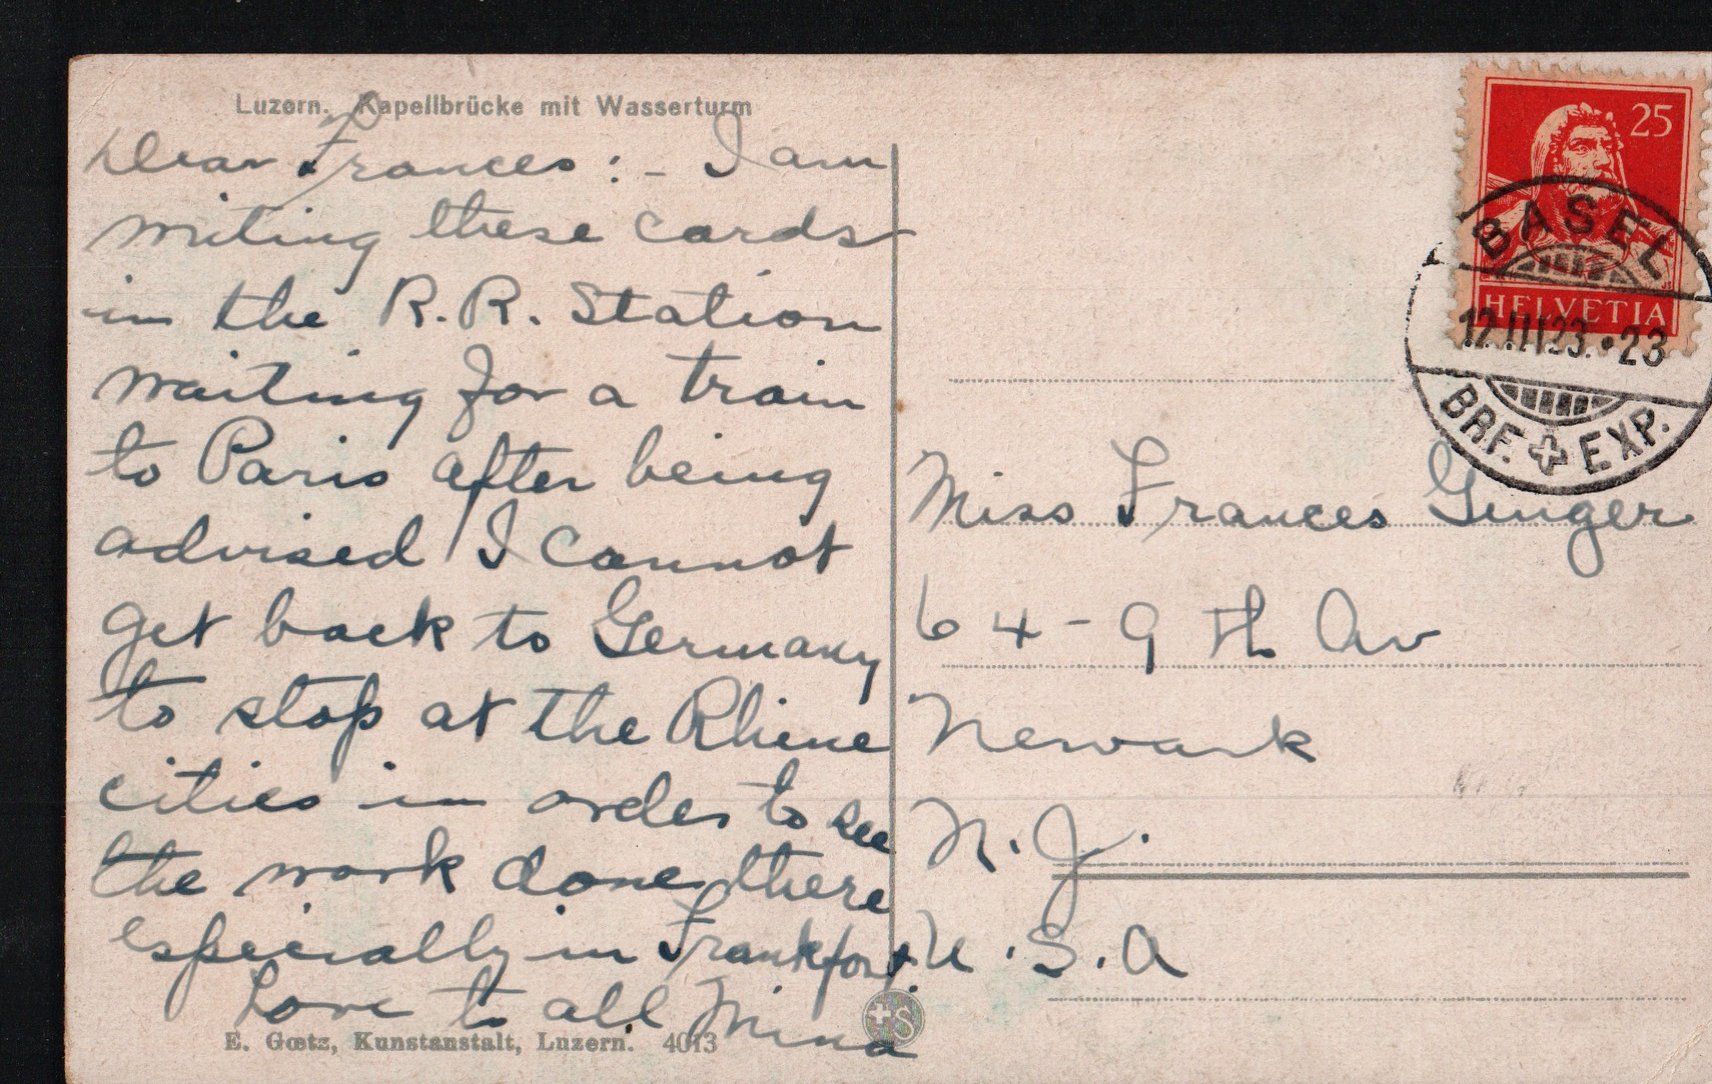 Luzern. Kapellbrücke mit Wasserturm
Dear Frances:- I am
writing these cards
in the R.R. Station
waiting for a train
to Paris after being
advised I cannot
get back to Germany
to stop at the Rhine
cities in order to see
the work done there
especially in Frankfort.
Love to all Minna
E. Gœtz, Kunstanstalt, Luzern. 4013
+S
25
HELVETIA
BASEL
12.III23.•23
BRF. EXP.
Miss Frances Ginger
64-9th Av
Newark
N.J.
U.S.A